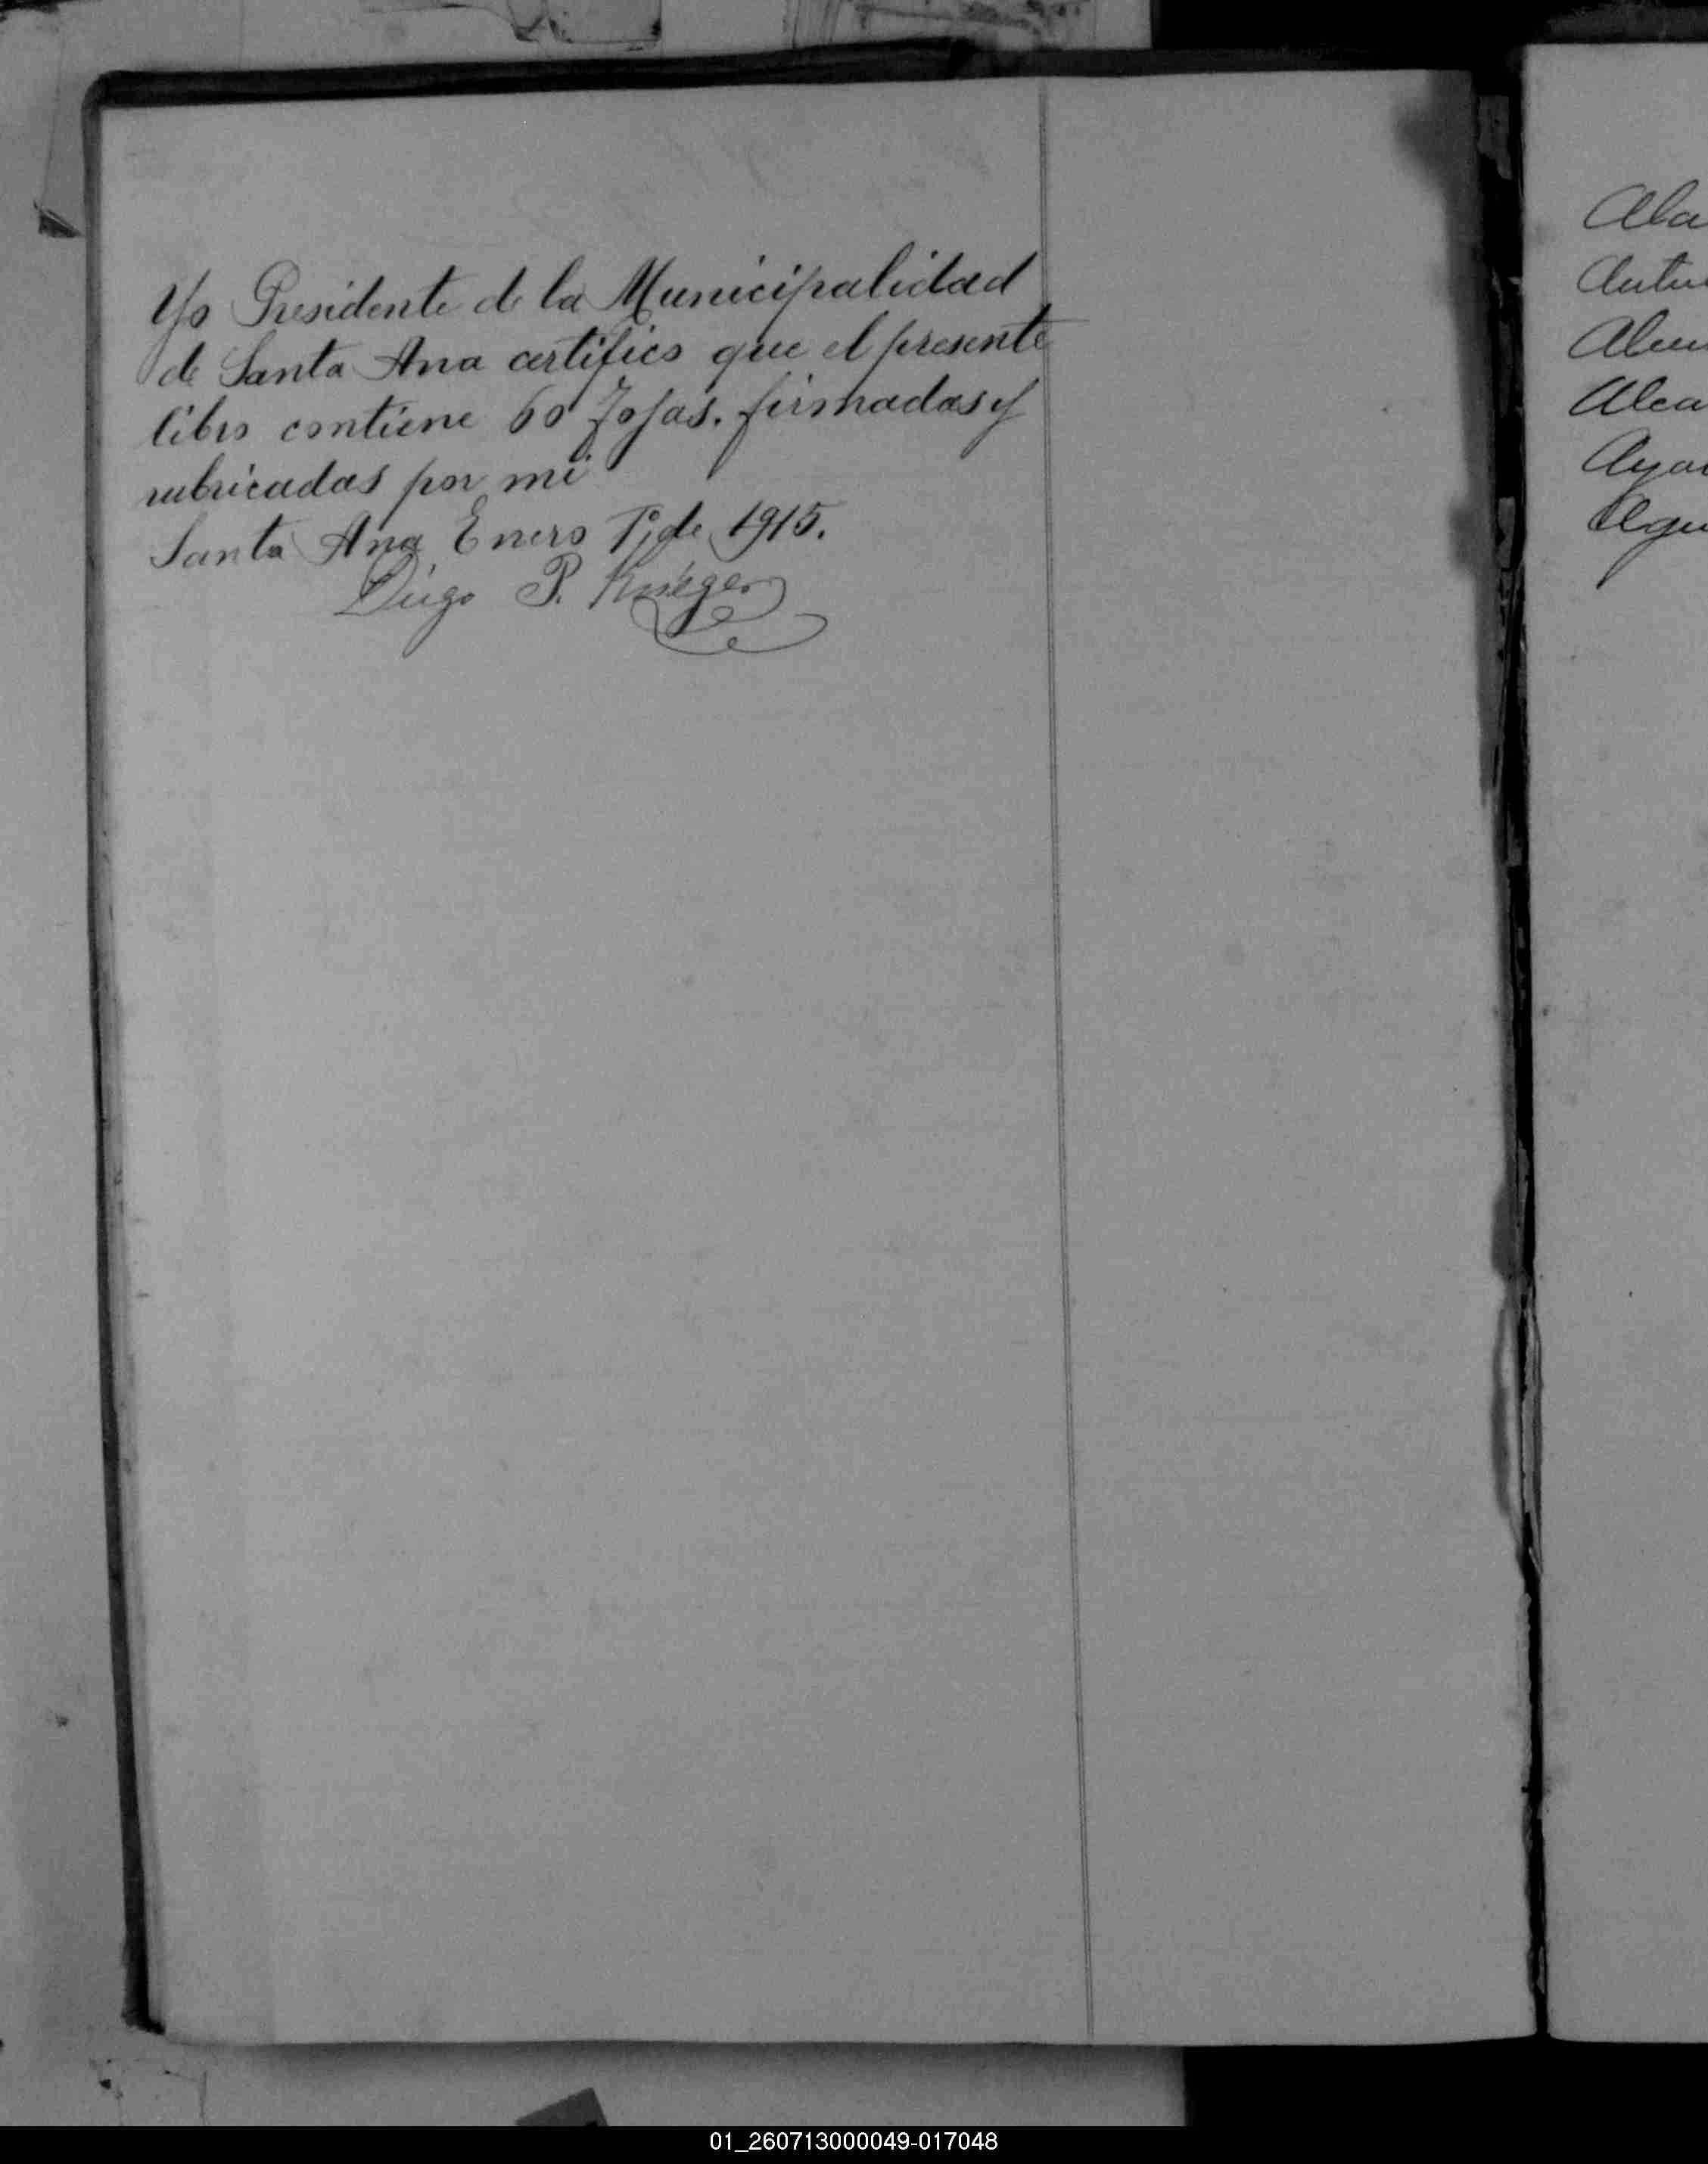 Yo Presidente de la Municipalidad
de Santa Ana certifico que el presente
libro contiene 60 fojas. firmadas y
rubricadas por mi
Santa Ana Enero 1º de 1915.
Diego P. Krieger
Ala
Alca
01_260713000049-017048